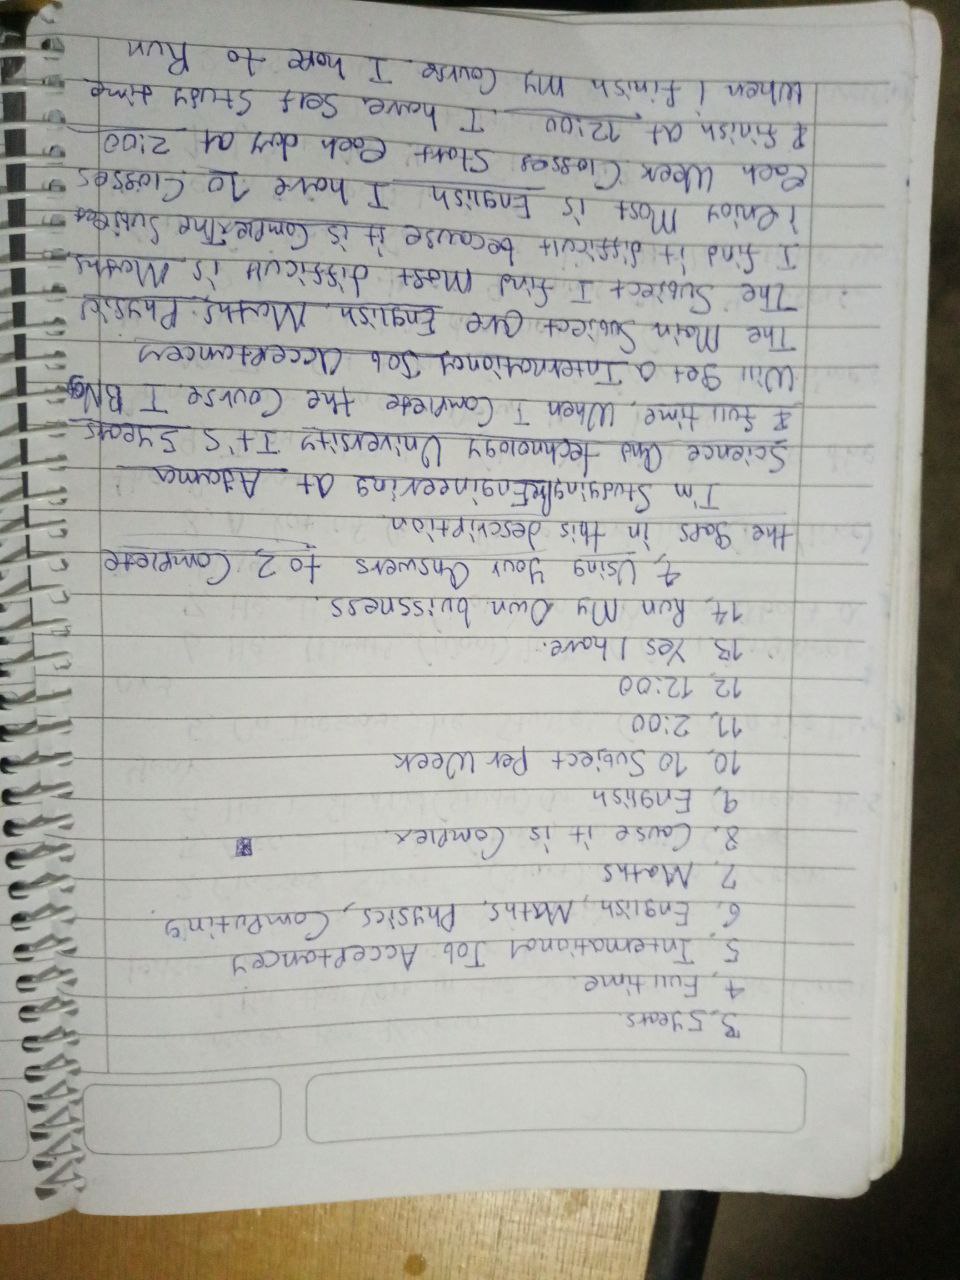 3, 5 years.
4, Full time.
5 International Job Acceptancey
6, English, Maths, Physics, Computing.
7, Maths
8. Cause it is Complex.
9, English
10, 10 Subject per Week
11, 2:00
12, 12:00
13, Yes I have.
14, Run My Own buissness.
4, Using your answers to 2, Complete
the gaps in this description.
I'm Studying Engineering at Adama
Science and technology University It's 5 years
& full time. When I Complete the Course I
Will get a International Job Acceptancey
The Main Subject are English, Maths, Physics
The Subject I find Most difficult is Maths.
I find it difficult because it is Complex. The Subject
I enjoy Most is English I have 10 Closses
Each Week Closses Start Each day at 2:00
& finish at 12:00 I have Self Study time
When I finish My Course I hope to Run